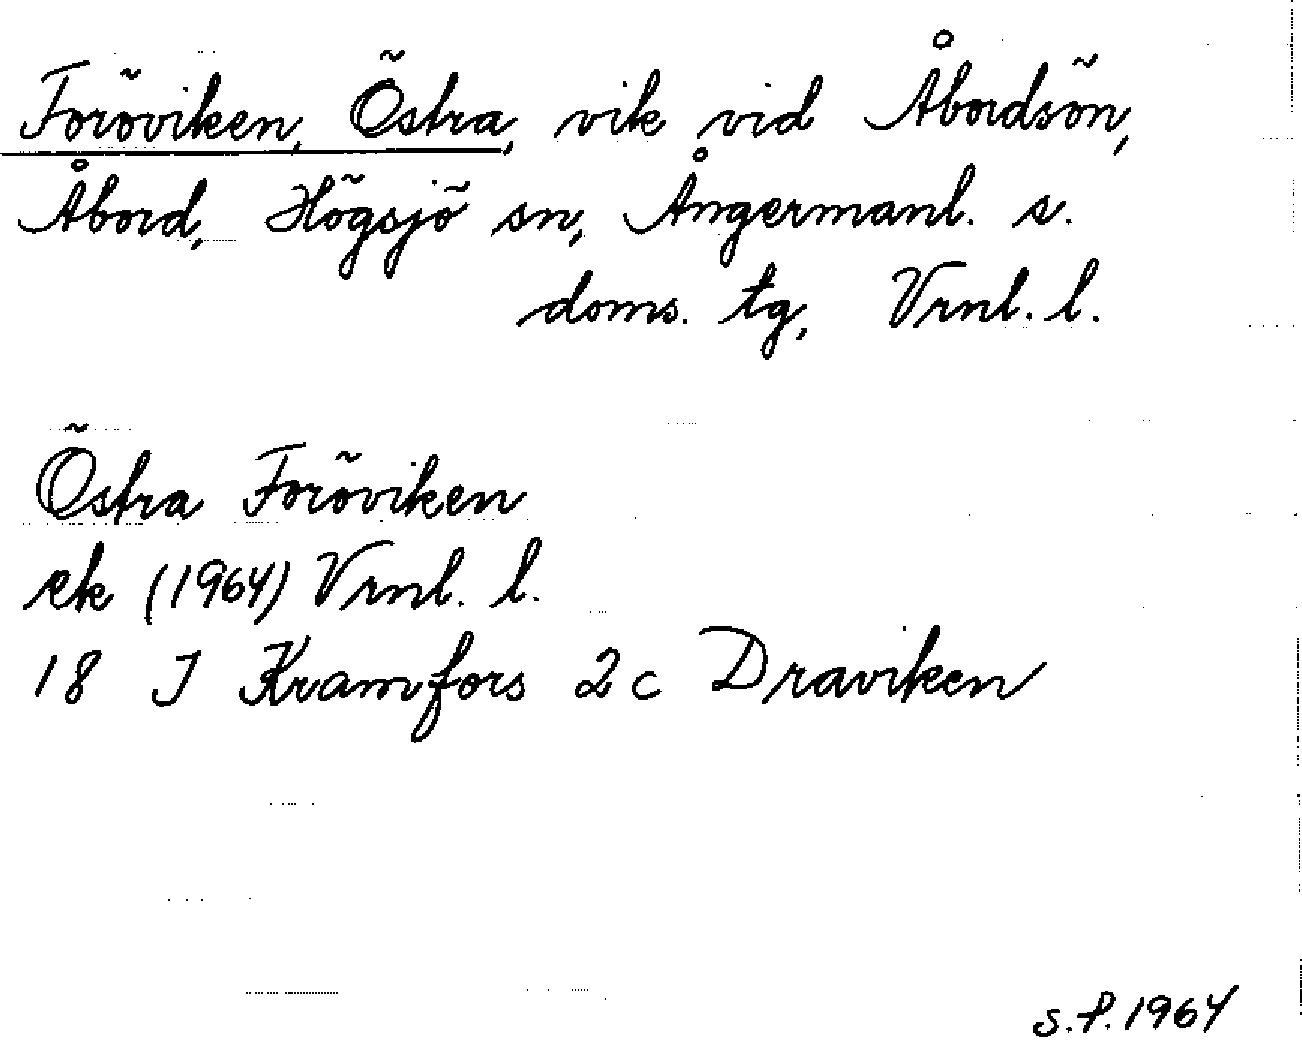 Foröviken, Östra, vik vid Åbordsön,
Åbord, Högsjö sn, Ångermanl. s.
doms. tg, Vrnl. l.
Östra Foröviken
ek (1964) Vrnl. l.
18 J Kramfors 2c Draviken
S.P. 1964